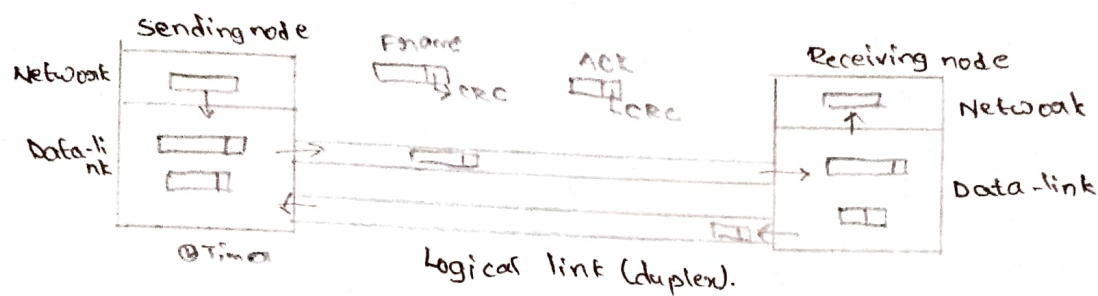 Sending node
Frame
CRC
ACK
CRC
Receiving node
Network
Network
Data-li
nk
Data-link
Timer
Logical link (duplex).